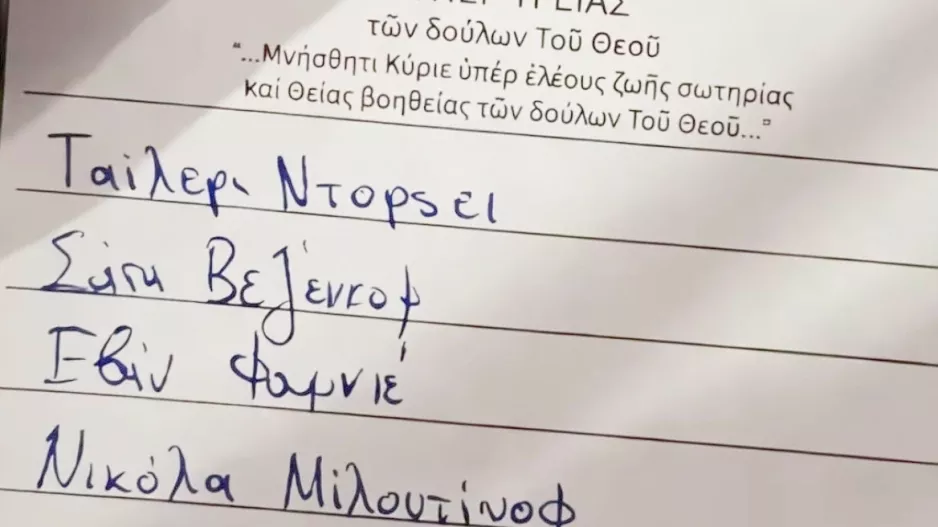 ΥΓΕΙΑΣ
τῶν δούλων Τοῦ Θεοῦ
“...Μνήσθητι Κύριε ὑπέρ ἐλέους ζωῆς σωτηρίας
καί Θείας βοηθείας τῶν δούλων Τοῦ Θεοῦ...”
Ταίλερ Ντορsει
Σάσα Βεζένκοφ
Εβάν Φουρνιέ
Νικόλα Μίλουτίνοφ